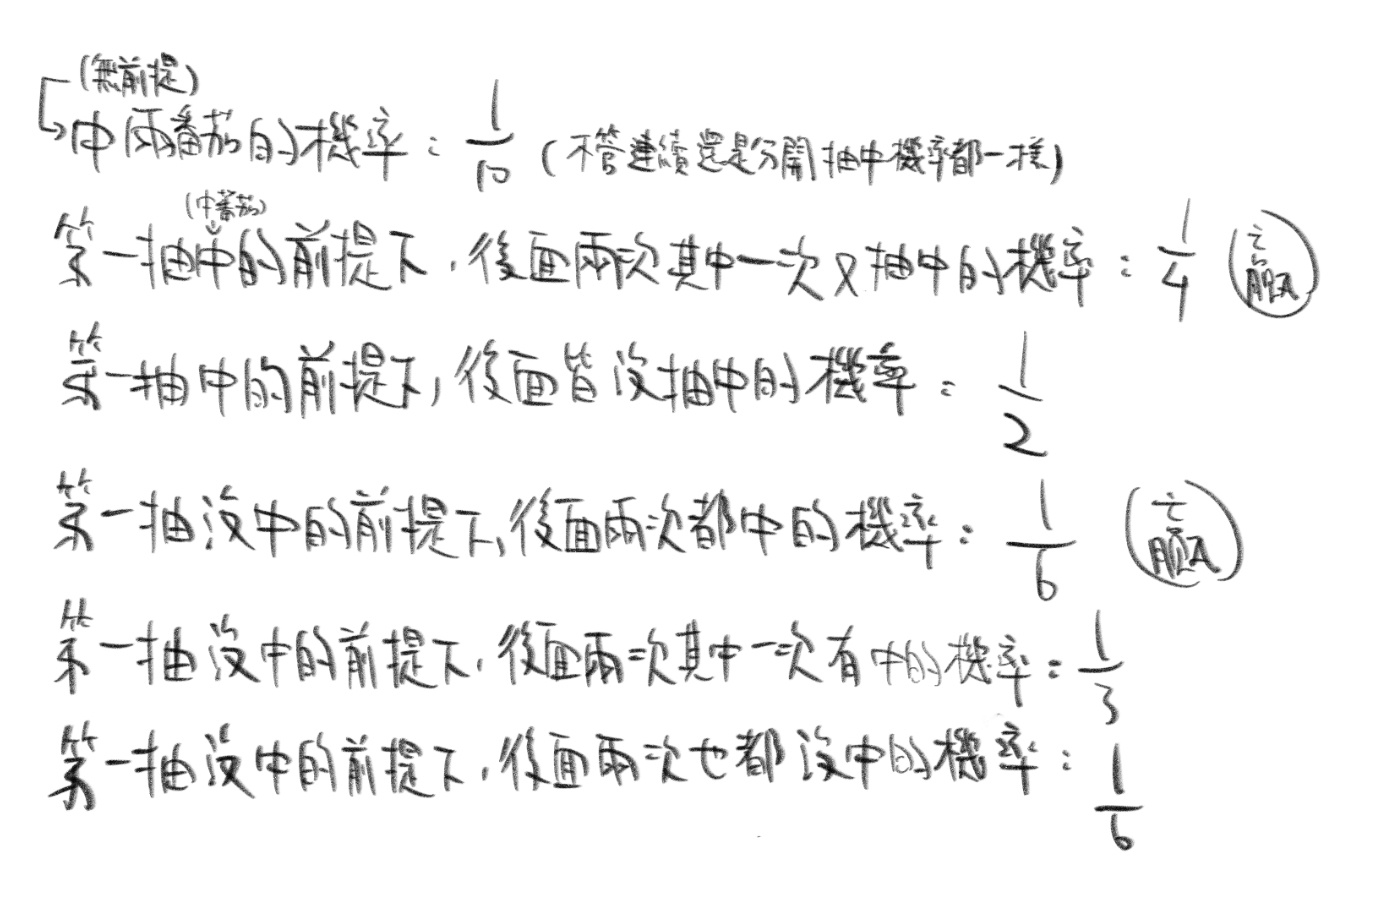 (無前提)
中兩番茄的機率：1/10 (不管連續還是分開抽中機率都一樣)
(中番茄)
第一抽中的前提下，後面兩次其中一次又抽中的機率：1/4 (贏)
第一抽中的前提下，後面皆沒抽中的機率：1/2
第一抽沒中的前提下，後面兩次都中的機率：1/6 (贏)
第一抽沒中的前提下，後面兩次其中一次有中的機率：1/3
第一抽沒中的前提下，後面兩次也都沒中的機率：1/6